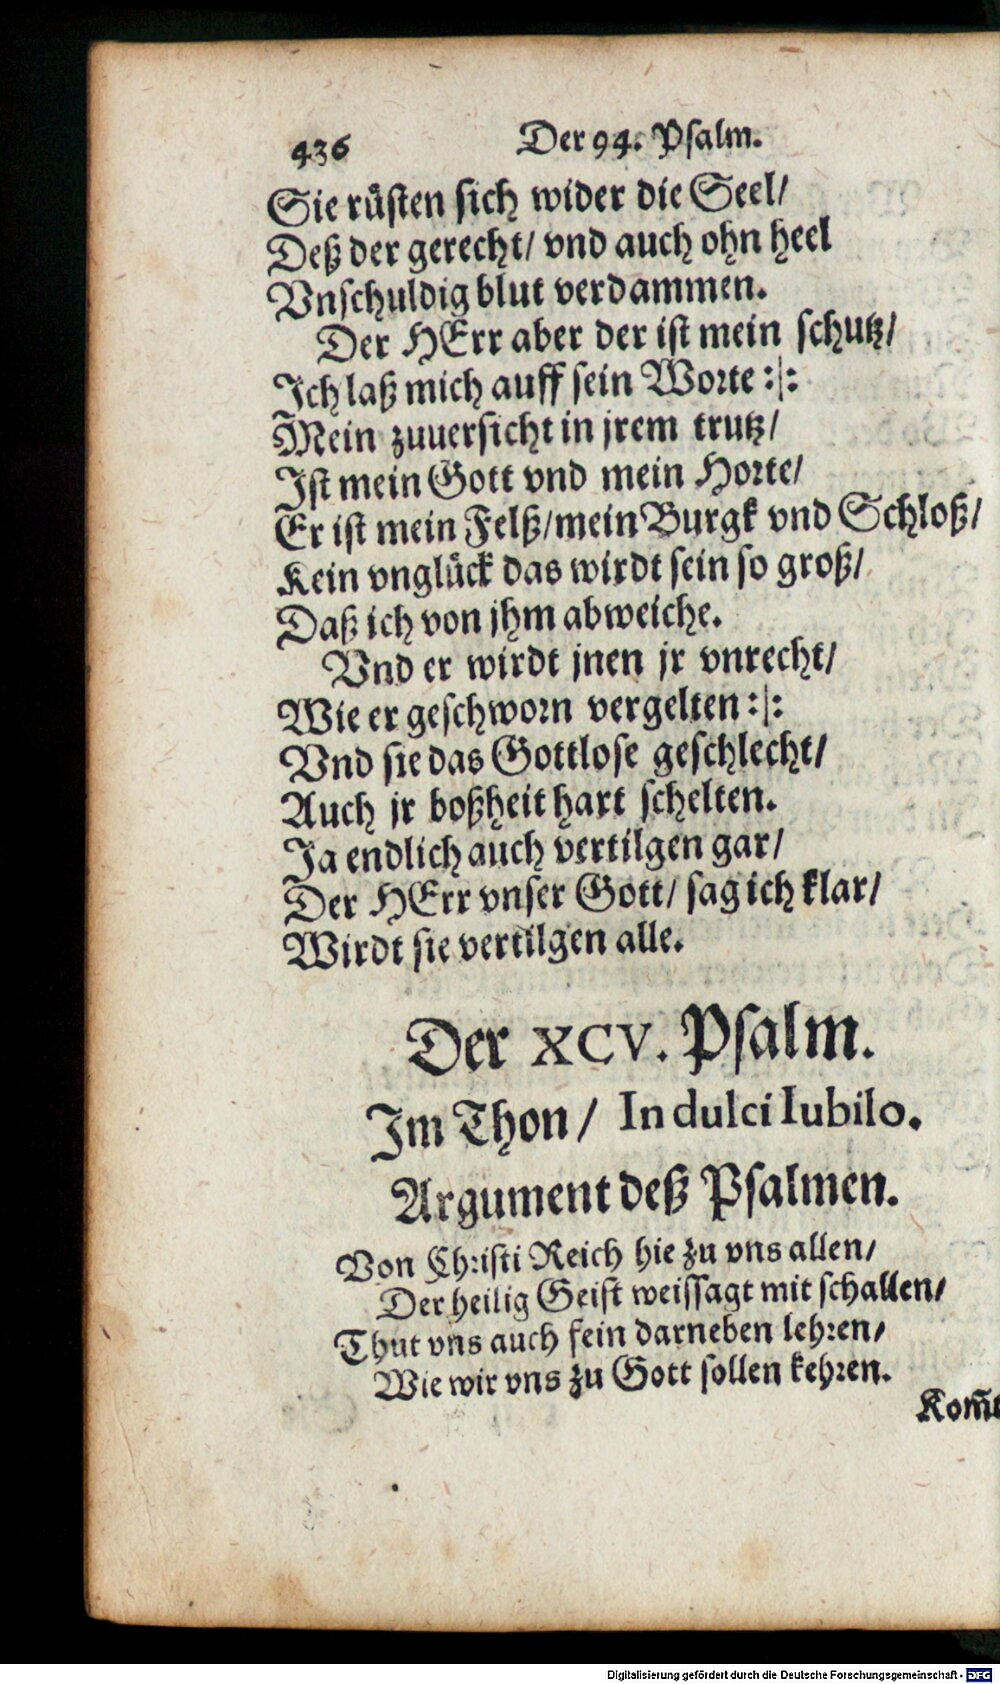 436 Der 94. Psalm.
Sie rüsten sich wider die Seel/
Deß der gerecht/ vnd auch ohn heel
Vnschuldig blut verdammen.
Der HErr aber der ist mein schutz/
Ich laß mich auff sein Worte :|:
Mein zuuersicht in jrem trutz/
Ist mein Gott vnd mein Horte/
Er ist mein Felß/mein Burgk vnd Schloß/
Kein vnglück das wirdt sein so groß/
Daß ich von jhm abweiche.
Vnd er wirdt jnen jr vnrecht/
Wie er geschworn vergelten :|:
Vnd sie das Gottlose geschlecht/
Auch jr boßheit hart schelten.
Ja endlich auch vertilgen gar/
Der HErr vnser Gott/ sag ich klar/
Wirdt sie vertilgen alle.
Der XCV. Psalm.
Im Thon/ In dulci Iubilo.
Argument deß Psalmen.
Von Christi Reich hie zu vns allen/
Der heilig Geist weissagt mit schallen/
Thut vns auch fein darneben lehren/
Wie wir vns zu Gott sollen kehren.
Kom̃t
Digitalisierung gefördert durch die Deutsche Forschungsgemeinschaft - DFG